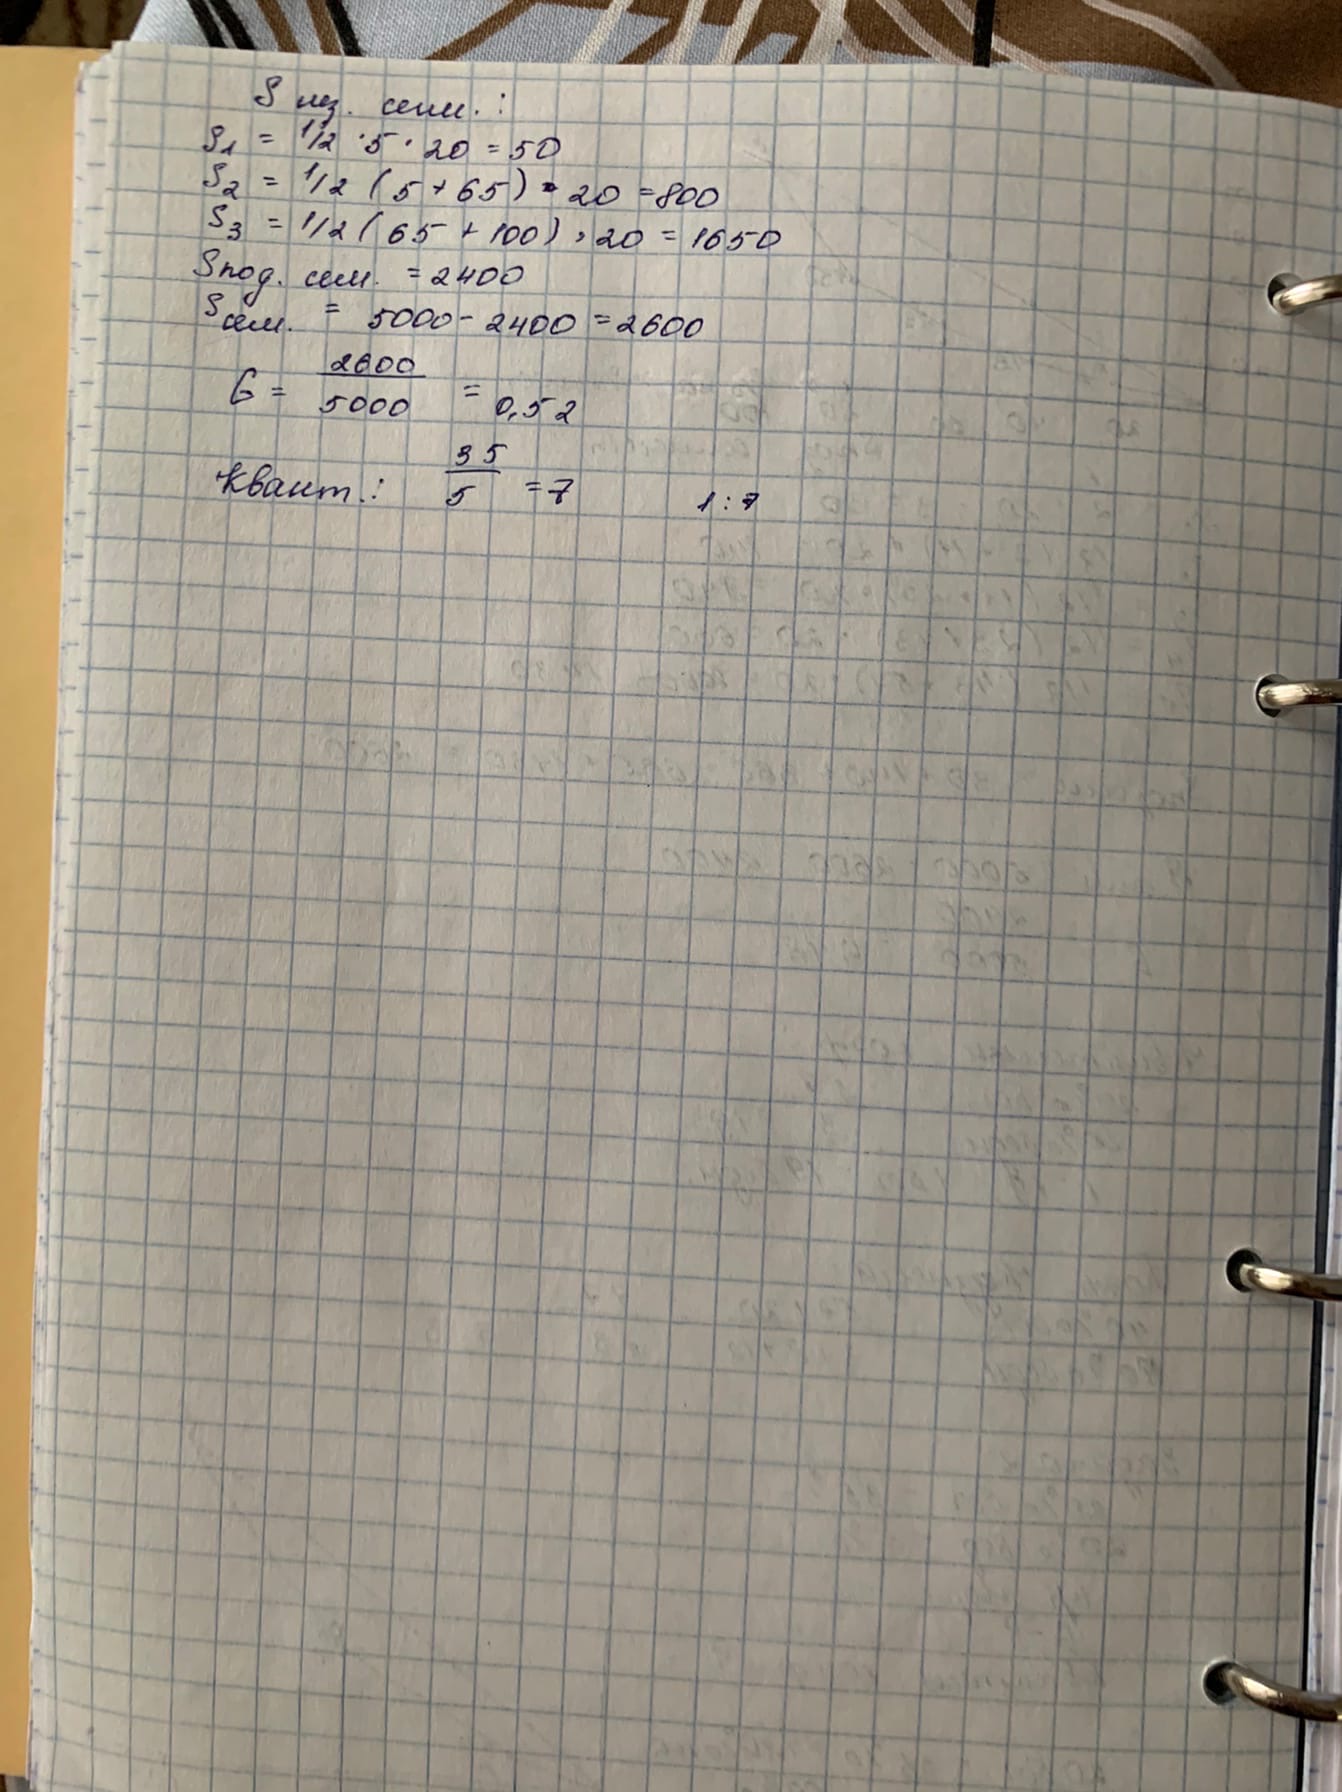 S из. сем. :
S1 = 1/2 · 5 · 20 = 50
S2 = 1/2 ( 5 + 65 ) · 20 = 800
S3 = 1/2 ( 65 + 100 ) · 20 = 1650
Sпод. сем. = 2400
Sсем. = 5000 - 2400 = 2600
G = 2600/5000 = 0,52
Квант.: 35/5 = 7 1 : 7